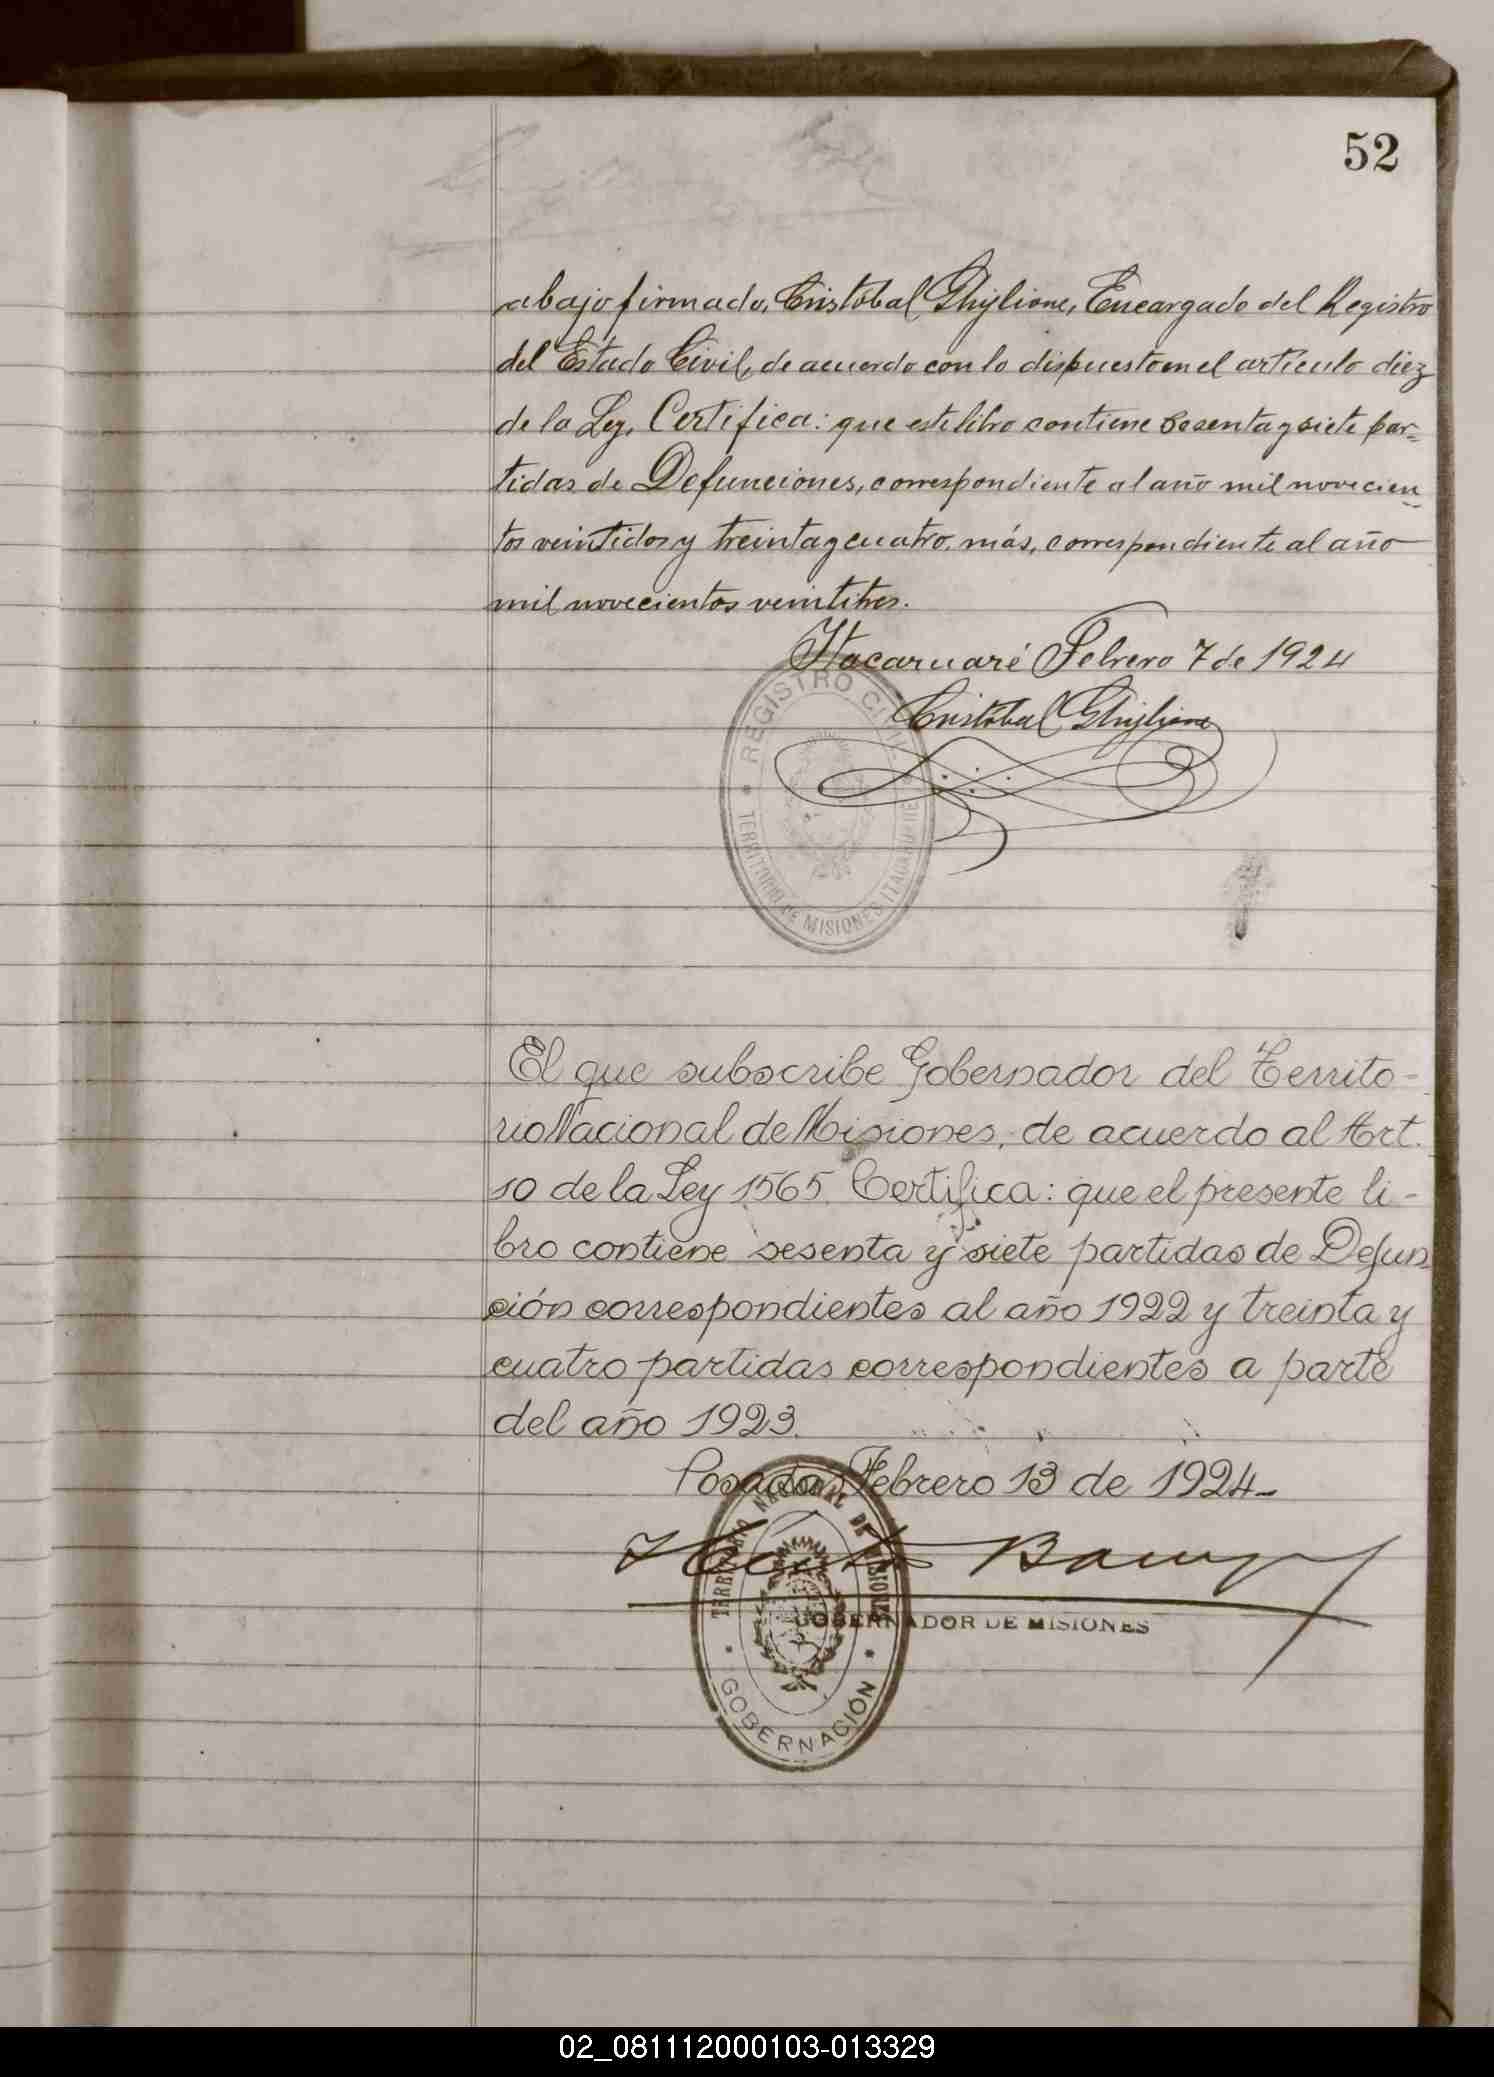 52
abajo firmado, Cristóbal Ghiglione, Encargado del Registro
del Estado Civil, de acuerdo con lo dispuesto en el artículo diez
de la Ley, Certifica: que este libro contiene sesenta y siete par=
tidas de Defunciones, correspondiente al año mil novecien=
tos veintidos y treinta y cuatro, más, correspondiente al año
mil novecientos veintitres.
Itacaruaré Febrero 7 de 1924
Cristóbal Ghiglione
REGISTRO CIVIL
TERRITORIO DE MISIONES ITACARUARE
El que subscribe Gobernador del Territo-
rio Nacional de Misiones, de acuerdo al Art.
10 de la Ley 1565. Certifica: que el presente li-
bro contiene sesenta y siete partidas de Defun
ción correspondientes al año 1922 y treinta y
cuatro partidas correspondientes a parte
del año 1923.
Posadas, Febrero 13 de 1924-
TERRITORIO NACIONAL DE MISIONES
GOBERNADOR DE MISIONES
GOBERNACIÓN
02_081112000103-013329